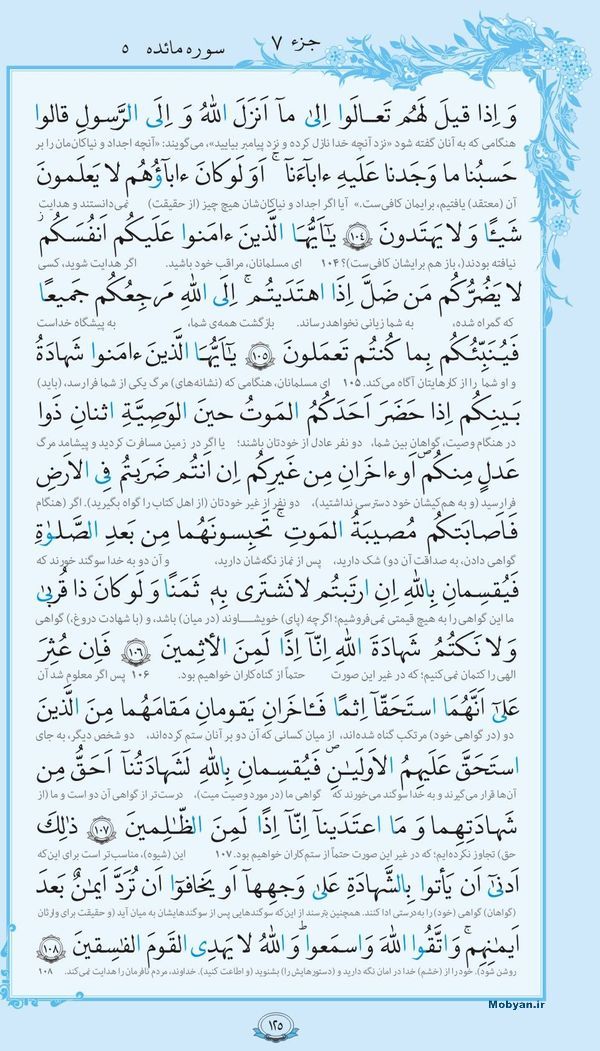 جزء ۷
سوره مائده ۵
وَ اِذا قیلَ لَهُم تَعـالَوا اِلیٰ مآ اَنزَلَ اللهُ وَ اِلَی الرَّسولِ قالوا
هنگامی که به آنان گفته شود «نزد آنچه خدا نازل کرده و نزد پیامبر بیایید»، می‌گویند: «آنچه اجداد و نیاکان‌مان را بر
حَسبُنا ما وَجَدنا عَلَیهِ ءابآءَنآ ۚ اَوَ لَو کانَ ءابآؤُهُم لا یَعلَمونَ
آن (معتقد) یافتیم، برایمان کافی‌ست.» آیا اگر اجداد و نیاکان‌شان هیچ چیز (از حقیقت) نمی‌دانستند و هدایت
شَیـًٔا وَ لا یَهتَدونَ ﴿۱۰۴﴾ یـٰٓاَیُّهَا الَّذینَ ءامَنوا عَلَیکُم اَنفُسَکُم ۖ
نیافته بودند(، باز هم برایشان کافی‌ست)؟ ۱۰۴ ای مسلمانان، مراقب خود باشید. اگر هدایت شوید، کسی
لا یَضُرُّکُم مَن ضَلَّ اِذَا اهتَدَیتُم ۚ اِلَی اللهِ مَرجِعُکُم جَمیعًا
که گمراه شده، به شما زیانی نخواهد رساند. بازگشت همه‌ی شما، به پیشگاه خداست
فَیُنَبِّئُکُم بِما کُنتُم تَعمَلونَ ﴿۱۰۵﴾ یـٰٓاَیُّهَا الَّذینَ ءامَنوا شَهادَةُ
و او شما را از کارهایتان آگاه می‌کند. ۱۰۵ ای مسلمانان، هنگامی که (نشانه‌های) مرگ یکی از شما فرا رسد، (باید)
بَـینِکُم اِذا حَضَرَ اَحَدَکُمُ المَوتُ حینَ الوَصِیَّةِ اثنانِ ذَوا
در هنگام وصیت، گواهان بین شما، دو نفر عادل از خودتان باشند؛ یا اگر در زمین مسافرت کردید و پیشامد مرگ
عَدلٍ مِنکُم اَو ءاخَرانِ مِن غَیرِکُم اِن اَنتُم ضَرَبتُم فِی الاَرضِ
فرا رسید (و به هم‌کیشان خود دسترسی نداشتید)، دو نفر از غیر خودتان (از اهل کتاب را گواه بگیرید). اگر (هنگام
فَاَصابَتکُم مُصیبَةُ المَوتِ ۚ تَحبِسونَهُما مِن بَعدِ الصَّلوٰةِ
گواهی دادن، به صداقت آن دو) شک دارید، پس از نماز نگه‌شان دارید، و آن دو به خدا سوگند خورند که
فَیُقسِمانِ بِاللهِ اِنِ ارتَبتُم لا نَشتَری بِهٖ ثَمَنًا وَ لَو کانَ ذا قُربیٰ ۙ
ما این گواهی را به هیچ قیمتی نمی‌فروشیم؛ اگرچه (پای) خویشـــاوند (در میان) باشد، و (با شهادت دروغ،) گواهی
وَ لا نَکتُمُ شَهادَةَ اللهِ اِنّآ اِذًا لَمِنَ الأٰثِمینَ ﴿۱۰۶﴾ فَاِن عُثِرَ
الهی را کتمان نمی‌کنیم؛ که در غیر این صورت حتماً از گناه‌کاران خواهیم بود. ۱۰۶ پس اگر معلوم شد آن
عَلیٰٓ اَنَّهُمَا استَحَقّآ اِثمًا فَـٔاخَرانِ یَقومانِ مَقامَهُما مِنَ الَّذینَ
دو (در گواهی خود) مرتکب گناه شده‌اند، از میان کسانی که آن دو بر آنان ستم کرده‌اند، دو شخص دیگر، به جای
استَحَقَّ عَلَیهِمُ الاَولَیـٰنِ فَیُقسِمانِ بِاللهِ لَشَهادَتُنآ اَحَقُّ مِن
آن‌ها قرار می‌گیرند و به خدا سوگند می‌خورند که گواهی ما (در مورد وصیت میت)، درست‌تر از گواهی آن دو است و ما (از
شَهادَتِهِما وَ مَا اعتَدَینآ اِنّآ اِذًا لَمِنَ الظّـٰلِمینَ ﴿۱۰۷﴾ ذٰلِکَ
حق) تجاوز نکرده‌ایم؛ که در غیر این صورت حتماً از ستم‌کاران خواهیم بود. ۱۰۷ این (شیوه)، مناسب‌تر است برای این‌که
اَدنیٰٓ اَن یَأتوا بِالشَّهادَةِ عَلیٰ وَجهِهآ اَو یَخافوٓا اَن تُرَدَّ اَیمٰنٌ بَعدَ
(گواهان) گواهی (خود) را به‌درستی ادا کنند. همچنین بترسند از این‌که سوگندهایی پس از سوگندهایشان به میان آید (و حقیقت برای وارثان
اَیمٰنِهِم ۗ وَ اتَّقُوا اللهَ وَ اسمَعوا ۗ وَ اللهُ لا یَهدِی القَومَ الفٰسِقینَ ﴿۱۰۸﴾
روشن شود). خود را از (خشم) خدا در امان نگه دارید و (دستورهایش را) بشنوید (و اطاعت کنید). خداوند، مردم نافرمان را هدایت نمی‌کند. ۱۰۸
Mobyan.ir
۱۲۵